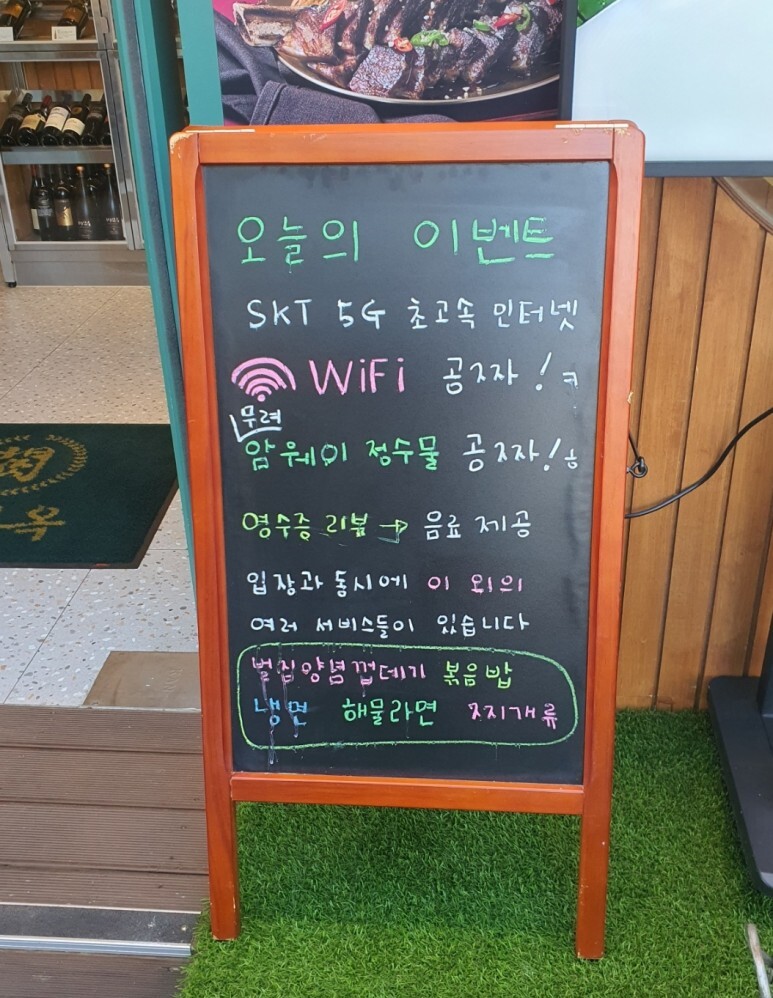 오늘의 이벤트
SKT 5G 초고속 인터넷
WiFi 공짜! ㅋ
무려
암웨이 정수물 공짜! ㅎ
영수증 리뷰 → 음료 제공
입장과 동시에 이 외의
여러 서비스들이 있습니다
벌집양념껍데기 볶음밥
냉면 해물라면 찌개류